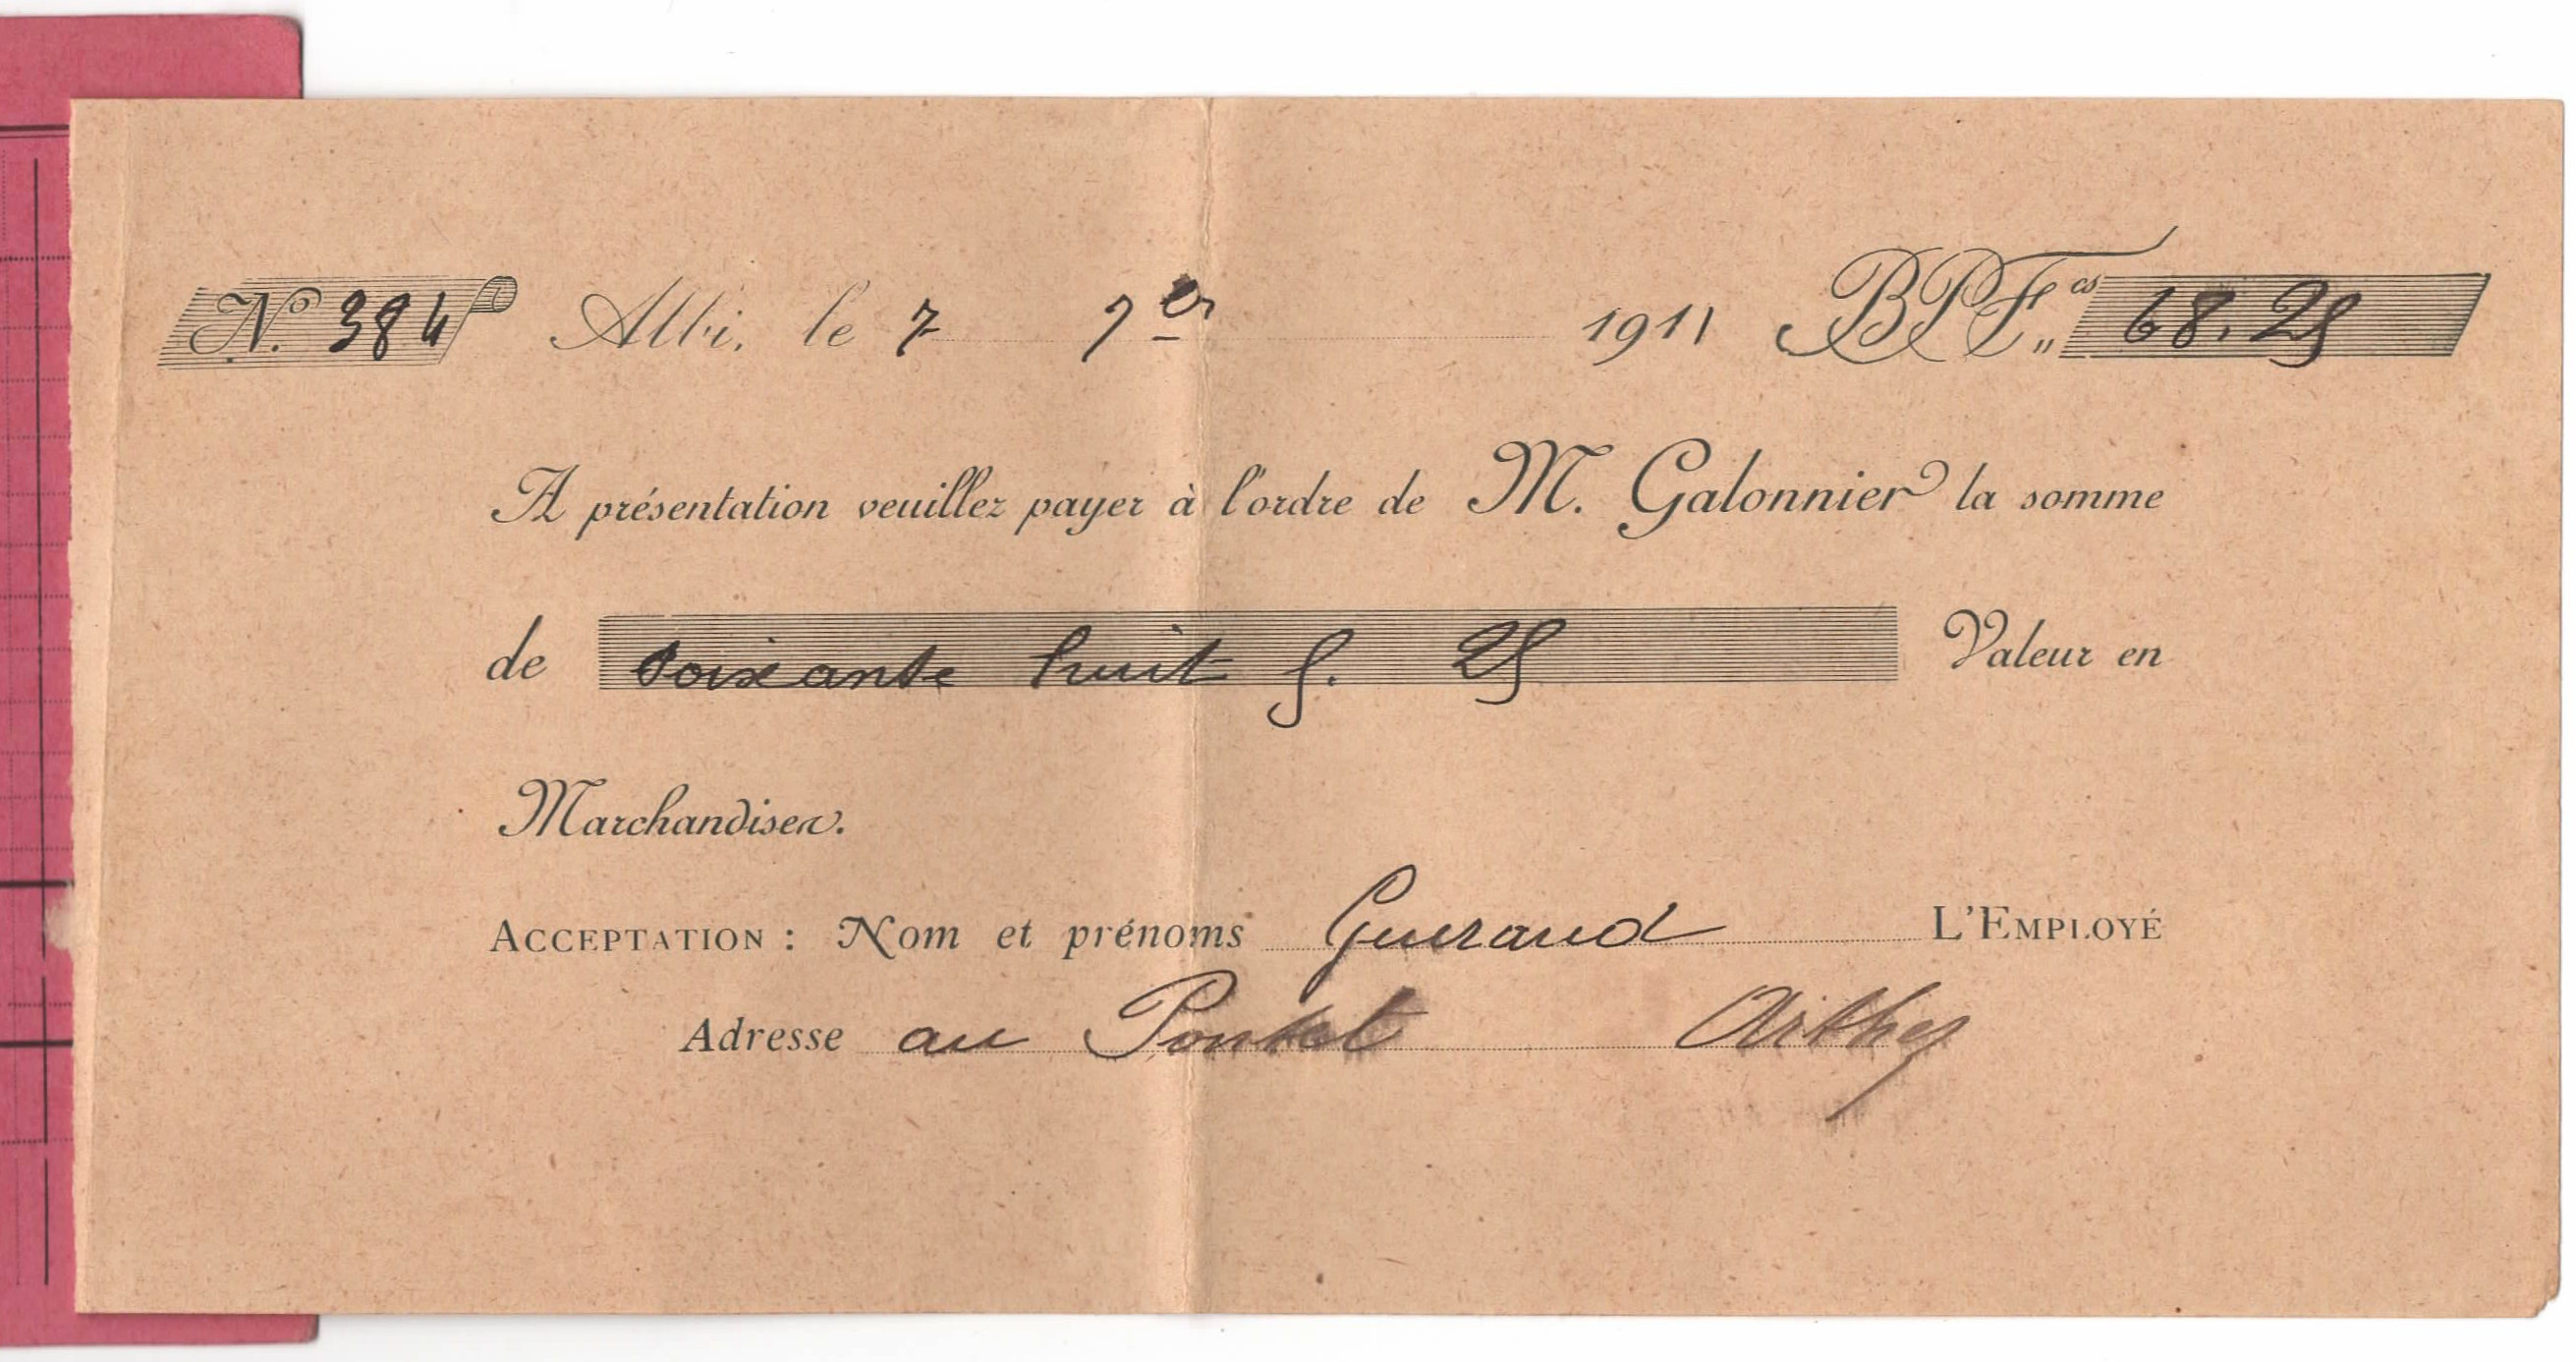 N.° 384 Albi, le 7 7er 1911 BPFcs „ 68.25
A présentation veuillez payer à l'ordre de M. Galonnier la somme
de soixante huit f. 25 Valeur en
Marchandises.
ACCEPTATION : Nom et prénoms Gueraud L'EMPLOYÉ
Adresse au Pontet Arthes